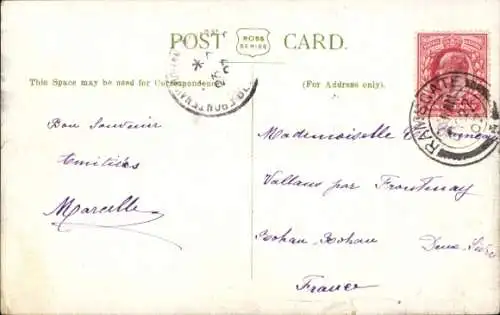 POST CARD.
ROSS
SERIES
This Space may be used for Correspondence.
(For Address only).
RAMSGATE
Bon Souvenir
Amitiés
Marcelle
Mademoiselle
Vallans par Frontenay
Rohan-Rohan Deux-Sèvres
France